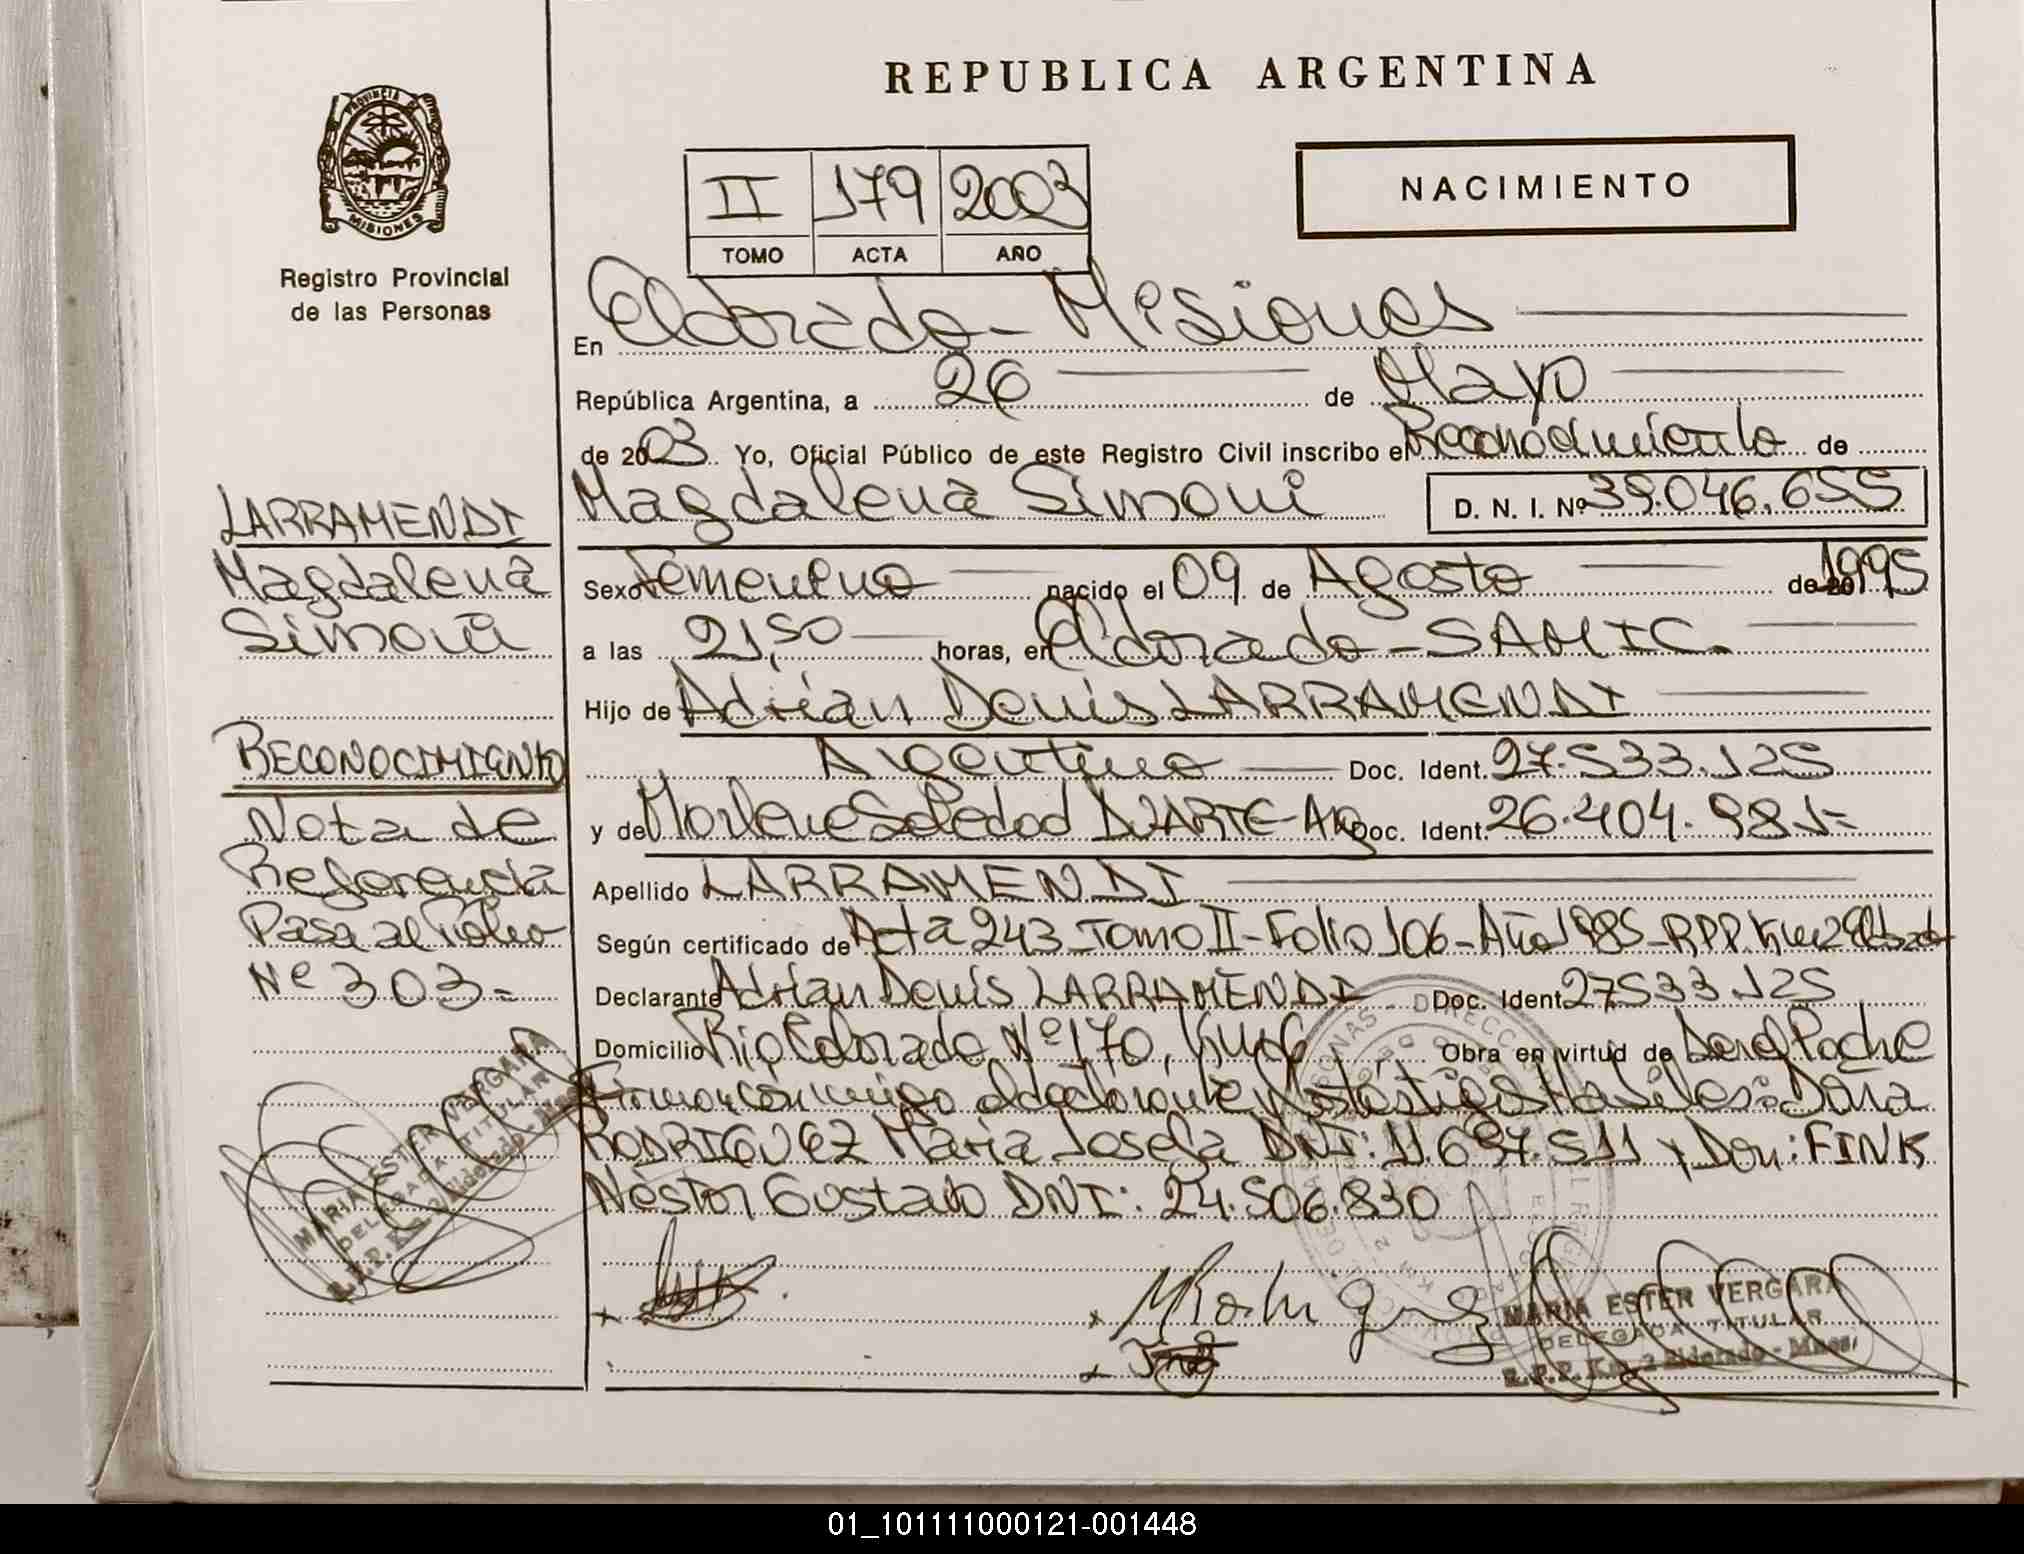 REPUBLICA ARGENTINA
PROVINCIA DE
MISIONES
Registro Provincial
de las Personas
NACIMIENTO
II 179 2003
TOMO ACTA AÑO
En Eldorado - Misiones
República Argentina, a 26 de Mayo
de 2003 Yo, Oficial Público de este Registro Civil inscribo el Reconocimiento de
Magdalena Simoni D. N. I. Nº 39.046.655
Sexo Femenino nacido el 09 de Agosto de 20 1995
a las 21,50 horas, en Eldorado - SAMIC.
Hijo de Adrian Denis LARRAMENDI
Argentino Doc. Ident. 27.533.125
y de Marlene Soledad DUARTE - Arg Doc. Ident. 26.404.981-
Apellido LARRAMENDI
Según certificado de Acta 243 - Tomo II - Folio 106 - Año 1985 - RPP Km 2 Eldorado
Declarante Adrian Denis LARRAMENDI Doc. Ident. 27533125
Domicilio Rio Colorado Nº 170, Km Obra en virtud de Ser el Padre
Firman conmigo el declarante y los testigos Habiles: Doña
RODRIGUEZ Maria Josefa DNI: 11.697.511 y Don: FINK
Nestor Gustavo DNI: 24.506.830
MARIA ESTER VERGARA
DELEGADA TITULAR
R.P.P. Km. 2 Eldorado - Mnes.
LARRAMENDI
Magdalena
Simoni
RECONOCIMIENTO
Nota de
Referencia
Pasa al Folio
Nº 303-
MARIA ESTER VERGARA
DELEGADA TITULAR
R.P.P. Km. 2 Eldorado - Mnes.
01_101111000121-001448